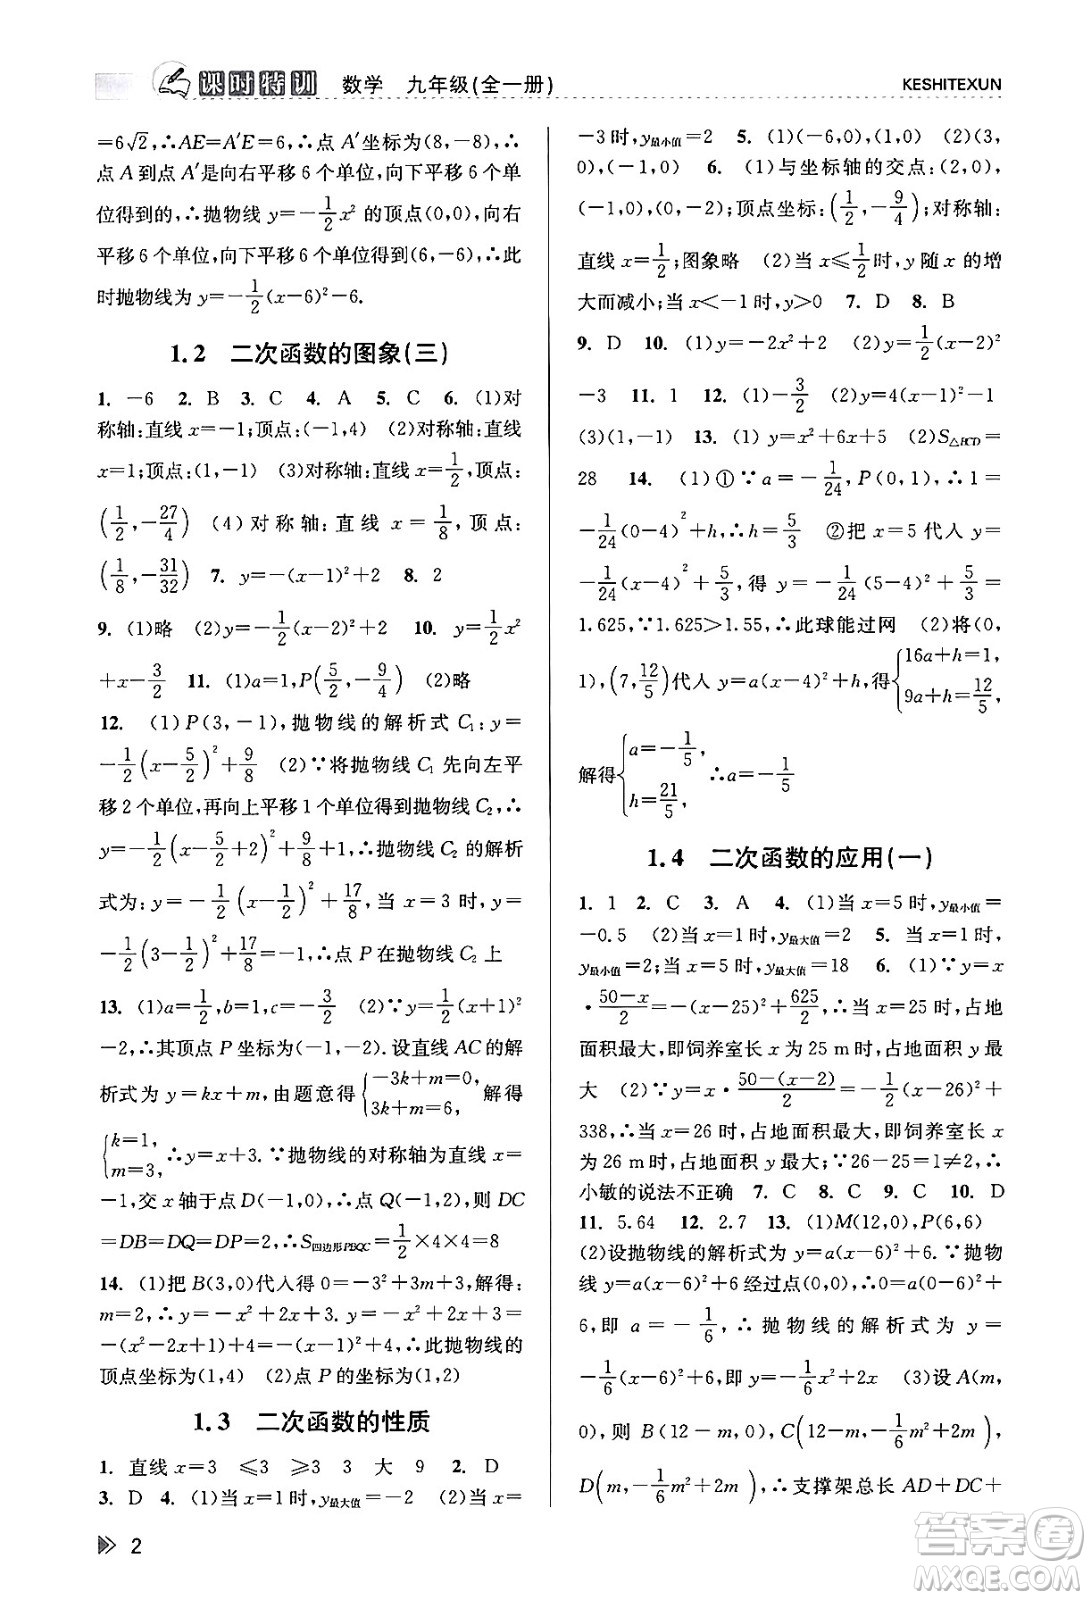 课时特训 数学 九年级(全一册)
KESHITEXUN
=6√2,∴AE=A′E=6,∴点 A′坐标为(8,-8),
点 A 到点 A′是向右平移 6 个单位,向下平移 6 个
单位得到的,∴抛物线 y=-1/2x² 的顶点(0,0),向右
平移 6 个单位,向下平移 6 个单位得到(6,-6),此
时抛物线为 y=-1/2(x-6)²-6.
1.2 二次函数的图象(三)
1. -6 2. B 3. C 4. A 5. C 6. (1)对
称轴:直线 x=-1;顶点:(-1,4) (2)对称轴:直线
x=1;顶点:(1,-1) (3)对称轴:直线 x=1/2,顶点:
(1/2,-27/4) (4)对称轴:直线 x=1/8,顶点:
(1/8,-31/32) 7. y=-(x-1)²+2 8. 2
9. (1)略 (2)y=-1/2(x-2)²+2 10. y=1/2x²
+x-3/2 11. (1)a=1,P(5/2,-9/4) (2)略
12. (1)P(3,-1),抛物线的解析式 C₁:y=
-1/2(x-5/2)²+9/8 (2)∵将抛物线 C₁ 先向左平
移 2 个单位,再向上平移 1 个单位得到抛物线 C₂,∴
y=-1/2(x-5/2+2)²+9/8+1,∴抛物线 C₂ 的解析
式为:y=-1/2(x-1/2)²+17/8,当 x=3 时,y=
-1/2(3-1/2)²+17/8=-1,∴点 P 在抛物线 C₂ 上
13. (1)a=1/2,b=1,c=-3/2 (2)∵y=1/2(x+1)²
-2,∴其顶点 P 坐标为(-1,-2).设直线 AC 的解
析式为 y=kx+m,根据题意得{-3k+m=0, 3k+m=6,解得
{k=1, m=3,∴y=x+3.∵抛物线的对称轴为直线 x=
-1,交 x 轴于点 D(-1,0),∴点 Q(-1,2),则 DC
=DB=DQ=DP=2,∴S四边形PBQC=1/2×4×4=8
14. (1)把 B(3,0)代入得 0=-3²+3m+3,解得:
m=2,∴y=-x²+2x+3,∴y=-x²+2x+3=
-(x²-2x+1)+4=-(x-1)²+4,此抛物线的
顶点坐标为(1,4) (2)点 P 的坐标为(1,2)
1.3 二次函数的性质
1. 直线 x=3 ⩽3 ⩾3 3 大 9 2. D
3. D 4. (1)当 x=1 时,y最大值=-2 (2)当 x=
2
-3 时,y最小值=2 5. (1)(-6,0),(1,0) (2)(3,
0),(-1,0) 6. (1)与坐标轴的交点:(2,0),
(-1,0),(0,-2);顶点坐标:(1/2,-9/4);对称轴:
直线 x=1/2;图象略 (2)当 x⩽1/2时,y 随 x 的增
大而减小;当 x<-1 时,y>0 7. D 8. B
9. D 10. (1)y=-2x²+2 (2)y=1/2(x-2)²
-3 11. 1 12. (1)-3/2 (2)y=4(x-1)²-1
(3)(1,-1) 13. (1) y=x²+6x+5 (2)S△BCD=
28 14. (1)①∵a=-1/24,P(0,1),∴1=
-1/24(0-4)²+h,∴h=5/3 ②把 x=5 代入 y=
-1/24(x-4)²+5/3,得 y=-1/24(5-4)²+5/3=
1.625,∵1.625>1.55,∴此球能过网 (2)将(0,
1),(7,12/5)代入 y=a(x-4)²+h,得{16a+h=1, 9a+h=12/5,
解得{a=-1/5, h=21/5, ∴a=-1/5
1.4 二次函数的应用(一)
1. 1 2. C 3. A 4. (1)当 x=5 时,y最小值=
-0.5 (2)当 x=1 时,y最大值=2 5. 当 x=1 时,
y最小值=2;当 x=5 时,y最大值=18 6. (1)∵y=x
·50-x/2=-1/2(x-25)²+625/2,∴当 x=25 时,占地
面积最大,即饲养室长 x 为 25 m 时,占地面积 y 最
大 (2)∵y=x·50-(x-2)/2=-1/2(x-26)²+
338,∴当 x=26 时,占地面积最大,即饲养室长 x
为 26 m 时,占地面积 y 最大.∵26-25=1≠2,∴
小敏的说法不正确 7. C 8. C 9. C 10. D
11. 5.64 12. 2.7 13. (1)M(12,0),P(6,6)
(2)设抛物线的解析式为 y=a(x-6)²+6,∵抛物
线 y=a(x-6)²+6 经过点(0,0),∴0=a(0-6)²+
6,即 a=-1/6,∴抛物线的解析式为 y=
-1/6(x-6)²+6,即 y=-1/6x²+2x (3)设 A(m,
0),则 B(12-m,0),C(12-m,-1/6m²+2m),
D(m,-1/6m²+2m),∴支撑架总长 AD+DC+
答案圈
MXQE.COM